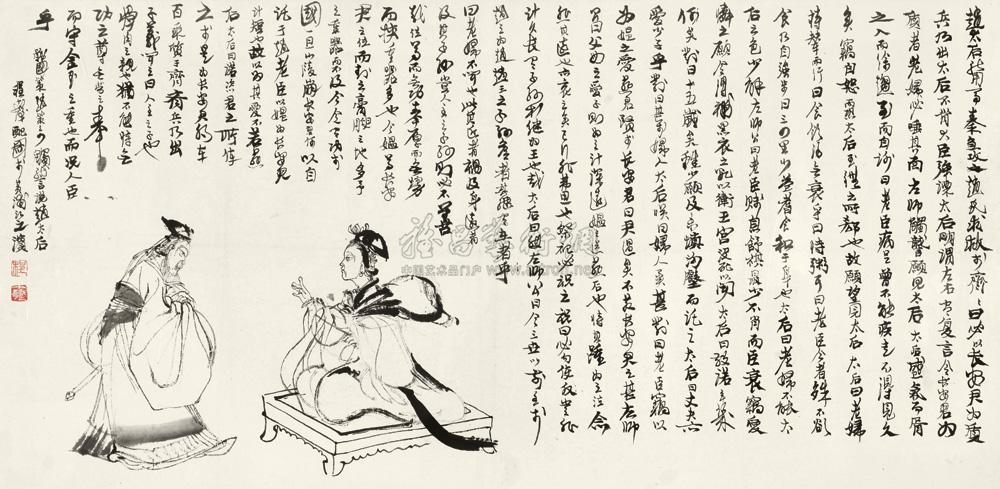 趙太后新用事秦急攻之趙氏求救於齊齊曰必以長安君為質
兵乃出太后不肯大臣強諫太后明謂左右有復言令長安君為
質者老婦必唾其面左師觸讋願見太后太后盛氣而胥
之入而徐趨至而自謝曰老臣病足曾不能疾走不得見久
矣竊自恕而恐太后玉體之所郄也故願望見太后太后曰老婦
恃輦而行曰食飲得無衰乎曰恃粥耳曰老臣今者殊不欲
食乃自強步日三四里少益嗜食和于身也太后曰老婦不能太
后之色少解左師公曰老臣賤息舒祺最少不肖而臣衰竊愛
憐之願令得補黑衣之數以衛王宮沒死以聞太后曰敬諾年幾
何矣對曰十五歲矣雖少願及未填溝壑而託之太后曰丈夫亦
愛憐少子乎對曰甚於婦人太后笑曰婦人異甚對曰老臣竊以
為媼之愛燕后賢於長安君曰君過矣不若長安君之甚左師
公曰父母之愛子則為之計深遠媼之送燕后也持其踵為之泣念
悲其遠也亦哀之矣已行非弗思也祭祀必祝之祝曰必勿使反豈非
計久長有子孫相繼為王也哉太后曰然左師公曰今三世以前至於
趙之為趙趙王之子孫侯者其繼有在者乎
曰老婦不聞也此其近者禍及身遠者
及其子孫豈人主之子孫則必不善
哉位尊而無功奉厚而無勞
而挾重器多也今媼尊長安
君之位而封之膏腴之地多予
之重器而不及今令有功於
國一旦山陵崩長安君何以自
託於趙老臣以媼為長安君
計短也故以為其愛不若燕
后太后曰諾恣君之所使
之於是為長安君約車
百乘質于齊齊兵乃出
子義聞之曰人主之子也
骨肉之親也猶不能恃無
功之尊無勞之奉
而守金玉之重也而況人臣
乎